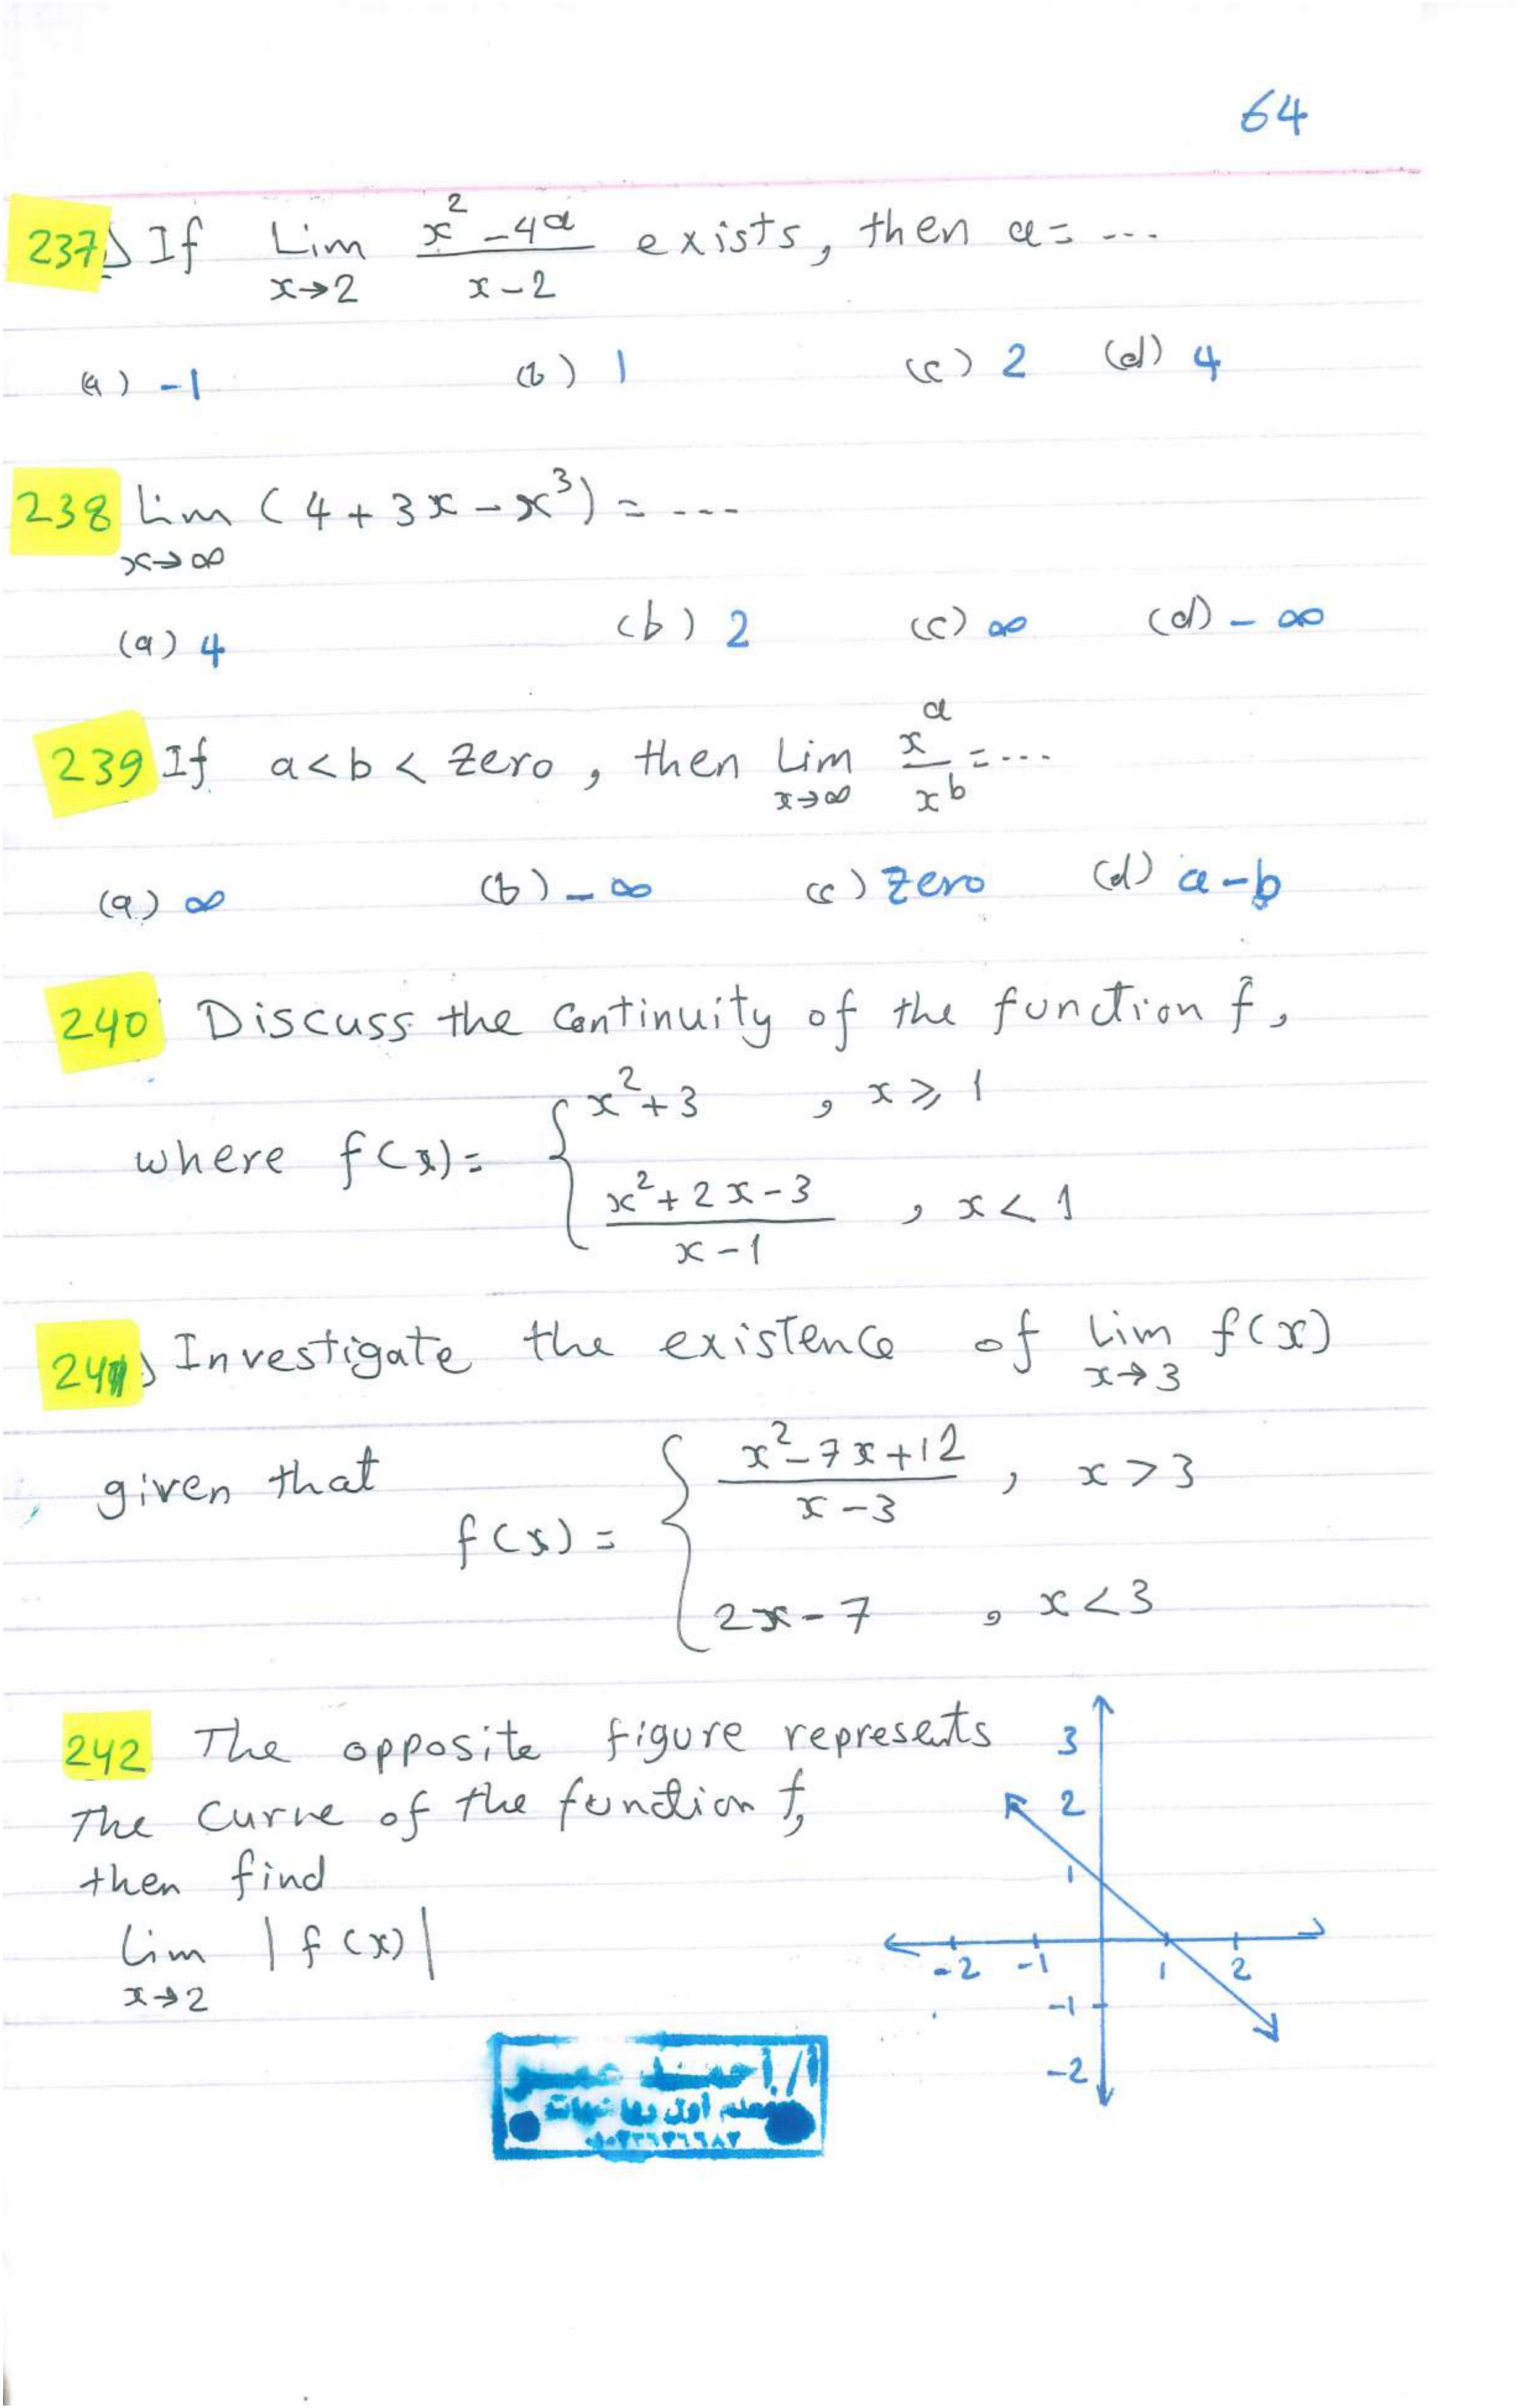 64
237) If Lim x→2 (x² - 4a)/(x - 2) exists, then a = ...
(a) -1 (b) 1 (c) 2 (d) 4
238 Lim x→∞ (4 + 3x - x³) = ...
(a) 4 (b) 2 (c) ∞ (d) - ∞
239 If a < b < zero, then Lim x→∞ x^a / x^b = ...
(a) ∞ (b) - ∞ (c) zero (d) a - b
240 Discuss the continuity of the function f,
where f(x) = { x² + 3 , x ⩾ 1
(x² + 2x - 3)/(x - 1) , x < 1
241) Investigate the existence of Lim x→3 f(x)
given that f(x) = { (x² - 7x + 12)/(x - 3) , x > 3
2x - 7 , x < 3
242 The opposite figure represents
The curve of the function f,
then find
Lim x→2 |f(x)|
3
2
1
-2 -1 1 2
-1
-2
أ/أحمد